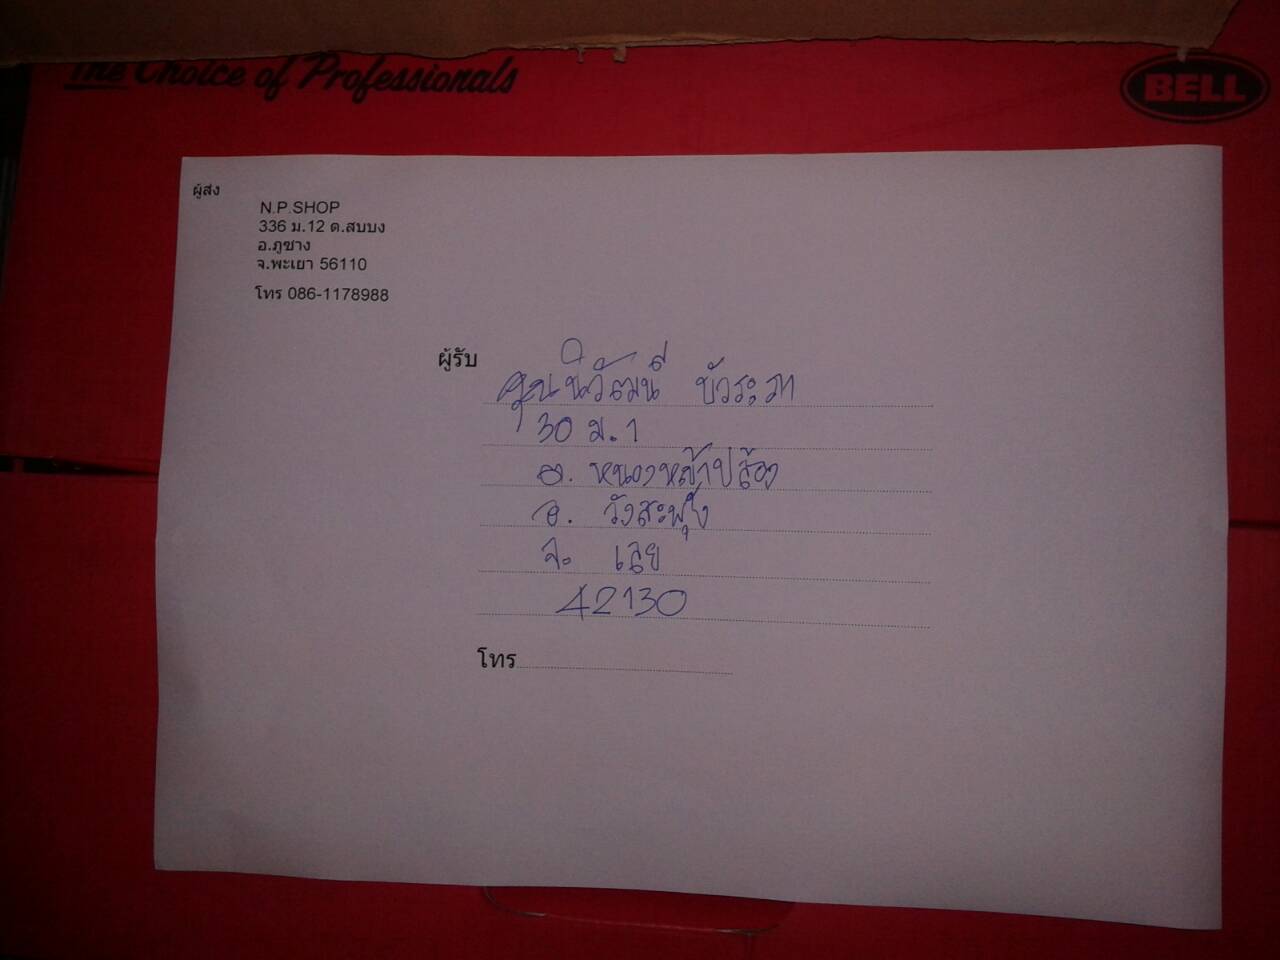 The Choice of Professionals
BELL
ผู้ส่ง
N.P.SHOP
336 ม.12 ต.สบบง
อ.ภูซาง
จ.พะเยา 56110
โทร 086-1178988
ผู้รับ
คุณนิวัฒน์ บัวระภา
30 ม.1
ต. หนองหญ้าปล้อง
อ. วังสะพุง
จ. เลย
42130
โทร